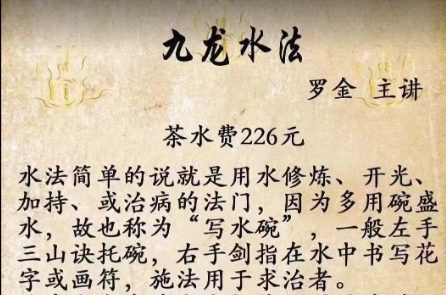 九龙水法
罗金 主讲
茶水费226元
水法简单的说就是用水修炼、开光、
加持、或治病的法门，因为多用碗盛
水，故也称为“写水碗”，一般左手
三山诀托碗，右手剑指在水中书写花
字或画符，施法用于求治者。